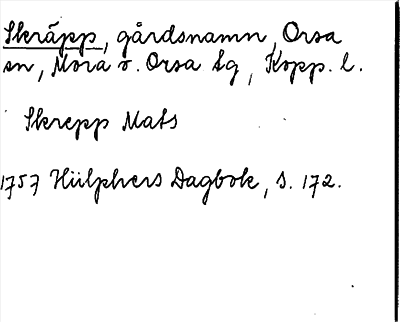 Skräpp, gårdsnamn, Orsa
sn, Mora o. Orsa tg, Kopp. l.
Skrepp Mats
1757 Hülphers Dagbok, s. 172.